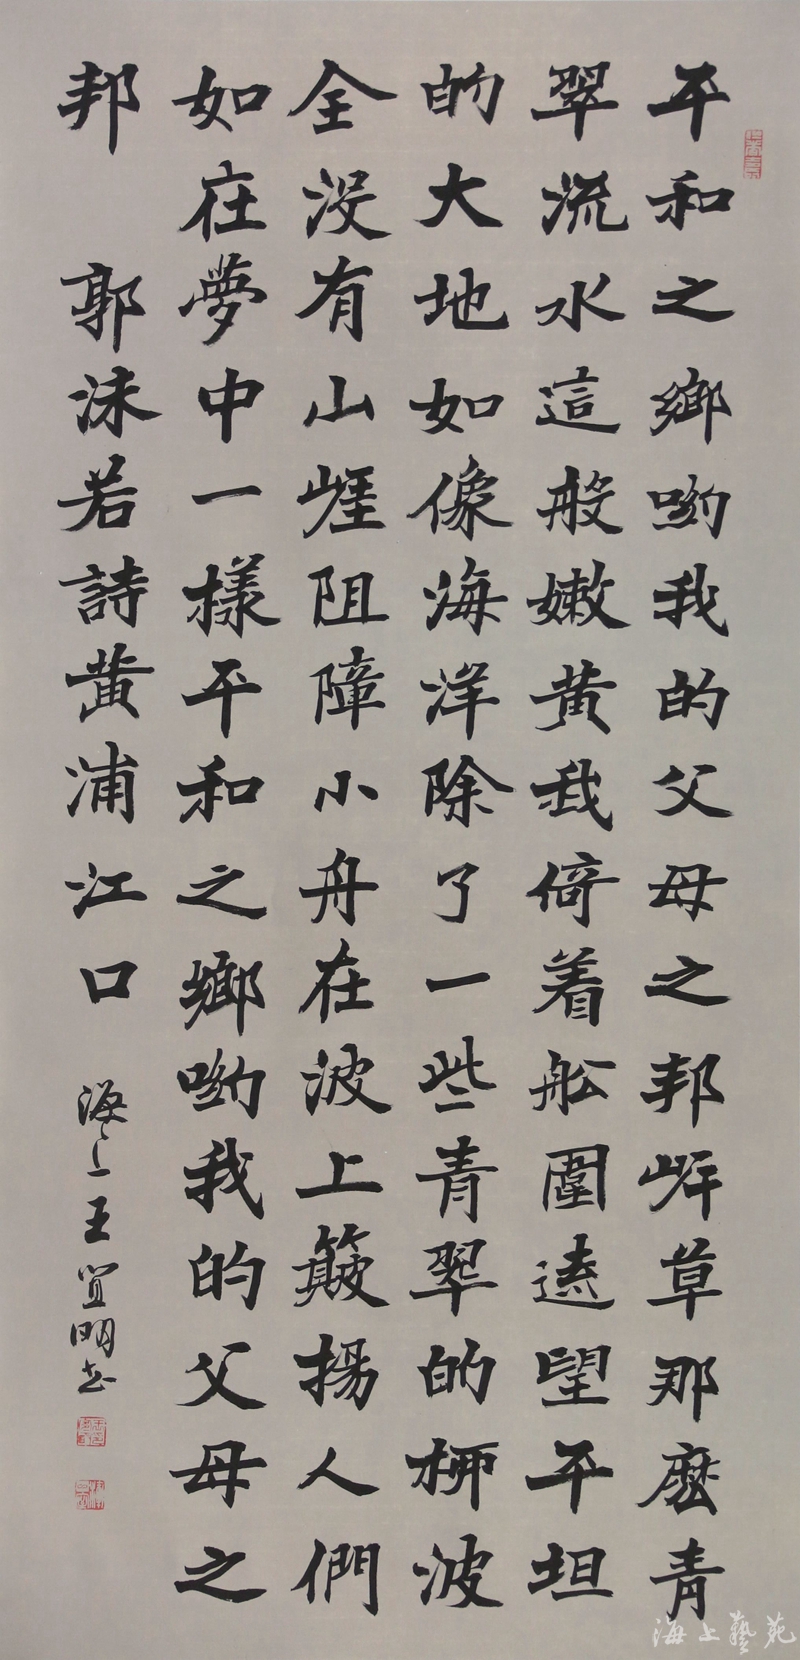 平和之鄉喲我的父母之邦岸草那麽青
翠流水這般嫩黄我倚着船圍遠望平坦
的大地如像海洋除了一些青翠的柳波
全没有山崖阻障小舟在波上簸揚人們
如在夢中一樣平和之鄉喲我的父母之
邦 郭沫若詩黄浦江口 海上王宜明书
海上藝苑